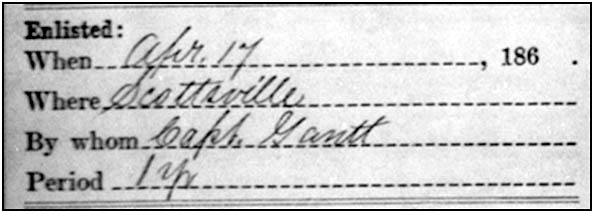 Enlisted:
When Apr. 17, 186 .
Where Scottsville
By whom Capt. Gantt
Period 1 yr